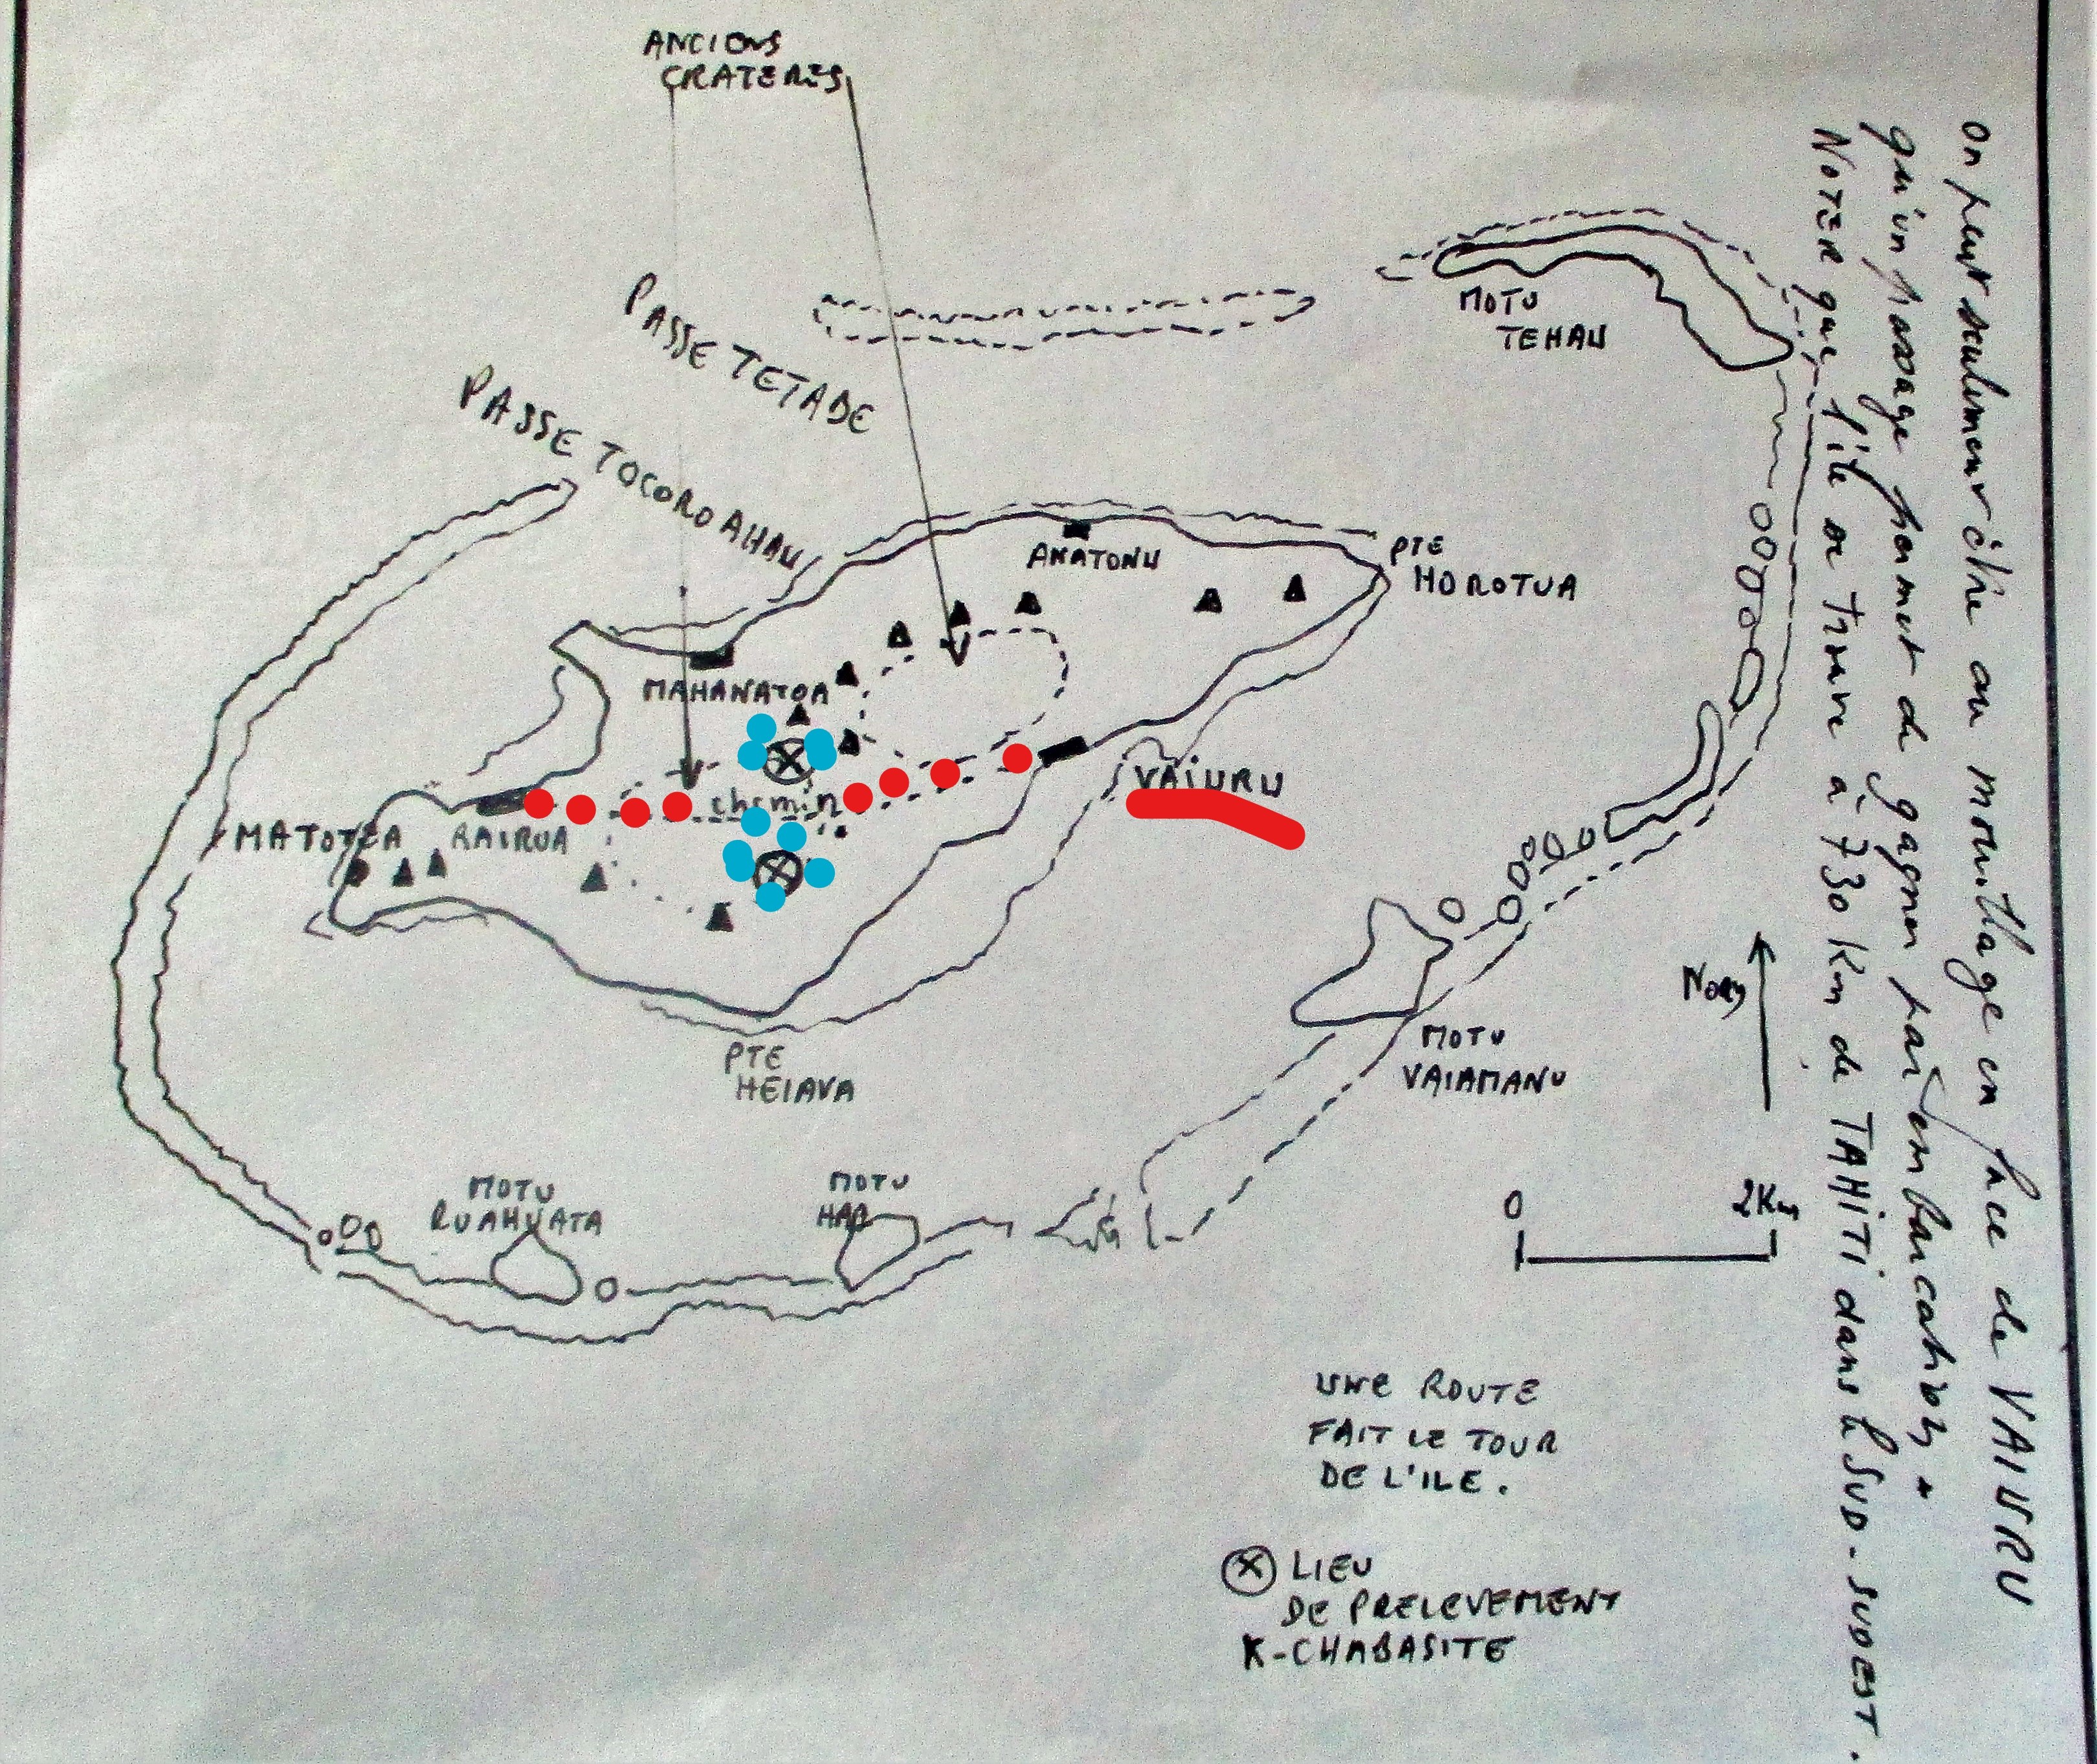 ANCIENS
CRATERES
PASSE TETADE
PASSE TOCOROAHAU
MOTU
TEHAU
ANATONU
PTE
HOROTUA
MAHANATOA
chemin
VAIURU
MATOTEA
RAIRUA
PTE
HEIAVA
MOTU
VAIAMANU
MOTU
RUAHUATA
MOTU
HAA
NORD
0
2Km
UNE ROUTE
FAIT LE TOUR
DE L'ILE.
LIEU
DE PRELEVEMENT
K-CHABASITE
On peut seulement être au mouillage en face de VAIURU
qu'un passage permet de gagner par embarcation
NOTER que l'île se trouve à 730 Km de TAHITI dans le SUD-SUDEST.